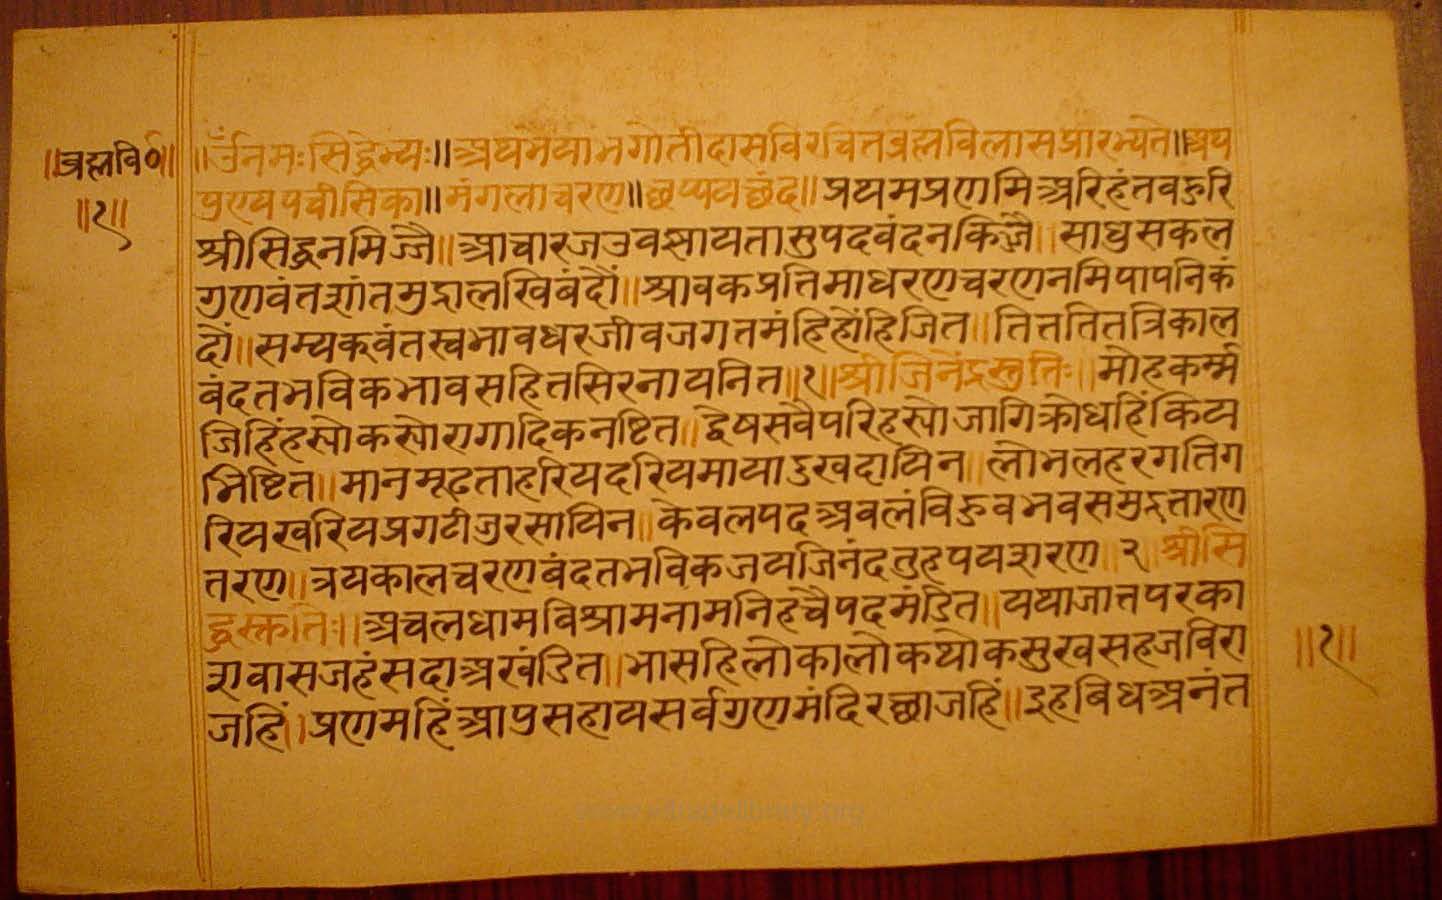 ॥ब्रह्मवि०॥
॥१॥
॥ॐनमःसिद्धेभ्यः॥अथभैयाभगोतीदासविरचितब्रह्मविलासप्रारभ्यते॥अथ
पुण्यपचीसिका॥मंगलाचरण॥छप्पयछंद॥प्रथमप्रणमिअरिहंतबहुरि
श्रीसिद्धनमिज्जै॥आचारजउवझायतासुपदवंदनकिज्जै॥साधुसकल
गुणवंतशांतमुद्रालखिबंदौं॥श्रावकप्रतिमाधरणचरणनमिपापनिकं
दौं॥सम्यकवंतस्वभावधरजीवजगतमंहिहोंहिजित॥तिततितत्रिकाल
वंदतभविकभावसहितसिरनायनित॥१॥श्रीजिनेंद्रस्तुतिः॥मोहकर्म्म
जिहिंहस्योकस्योरागादिकनष्टित॥द्वेषसवैपरिहस्योजागिक्रोधहिंकिय
भिष्टित॥मानमूढताहरियदरियमायादुखदायिन॥लोभलहरगतिग
रियखरियप्रगटीजुरसायिन॥केवलपदअवलंविहुवभवसमुद्रतारण
तरण॥त्रयकालचरणबंदतभविकजयजिनंदतुहपयशरण॥२॥श्रीसि
द्धस्तुतिः॥अचलधामविश्रामनामनिहचैपदमंडित॥यथाजातपरका
शवासजहंसदाअखंडित॥भासहिलोकालोकथोकसुखसहजविरा
जहिं॥प्रणमहिंआपुसहायसर्वगुणमंदिरछाजहिं॥इहबिधअनंत
॥१॥